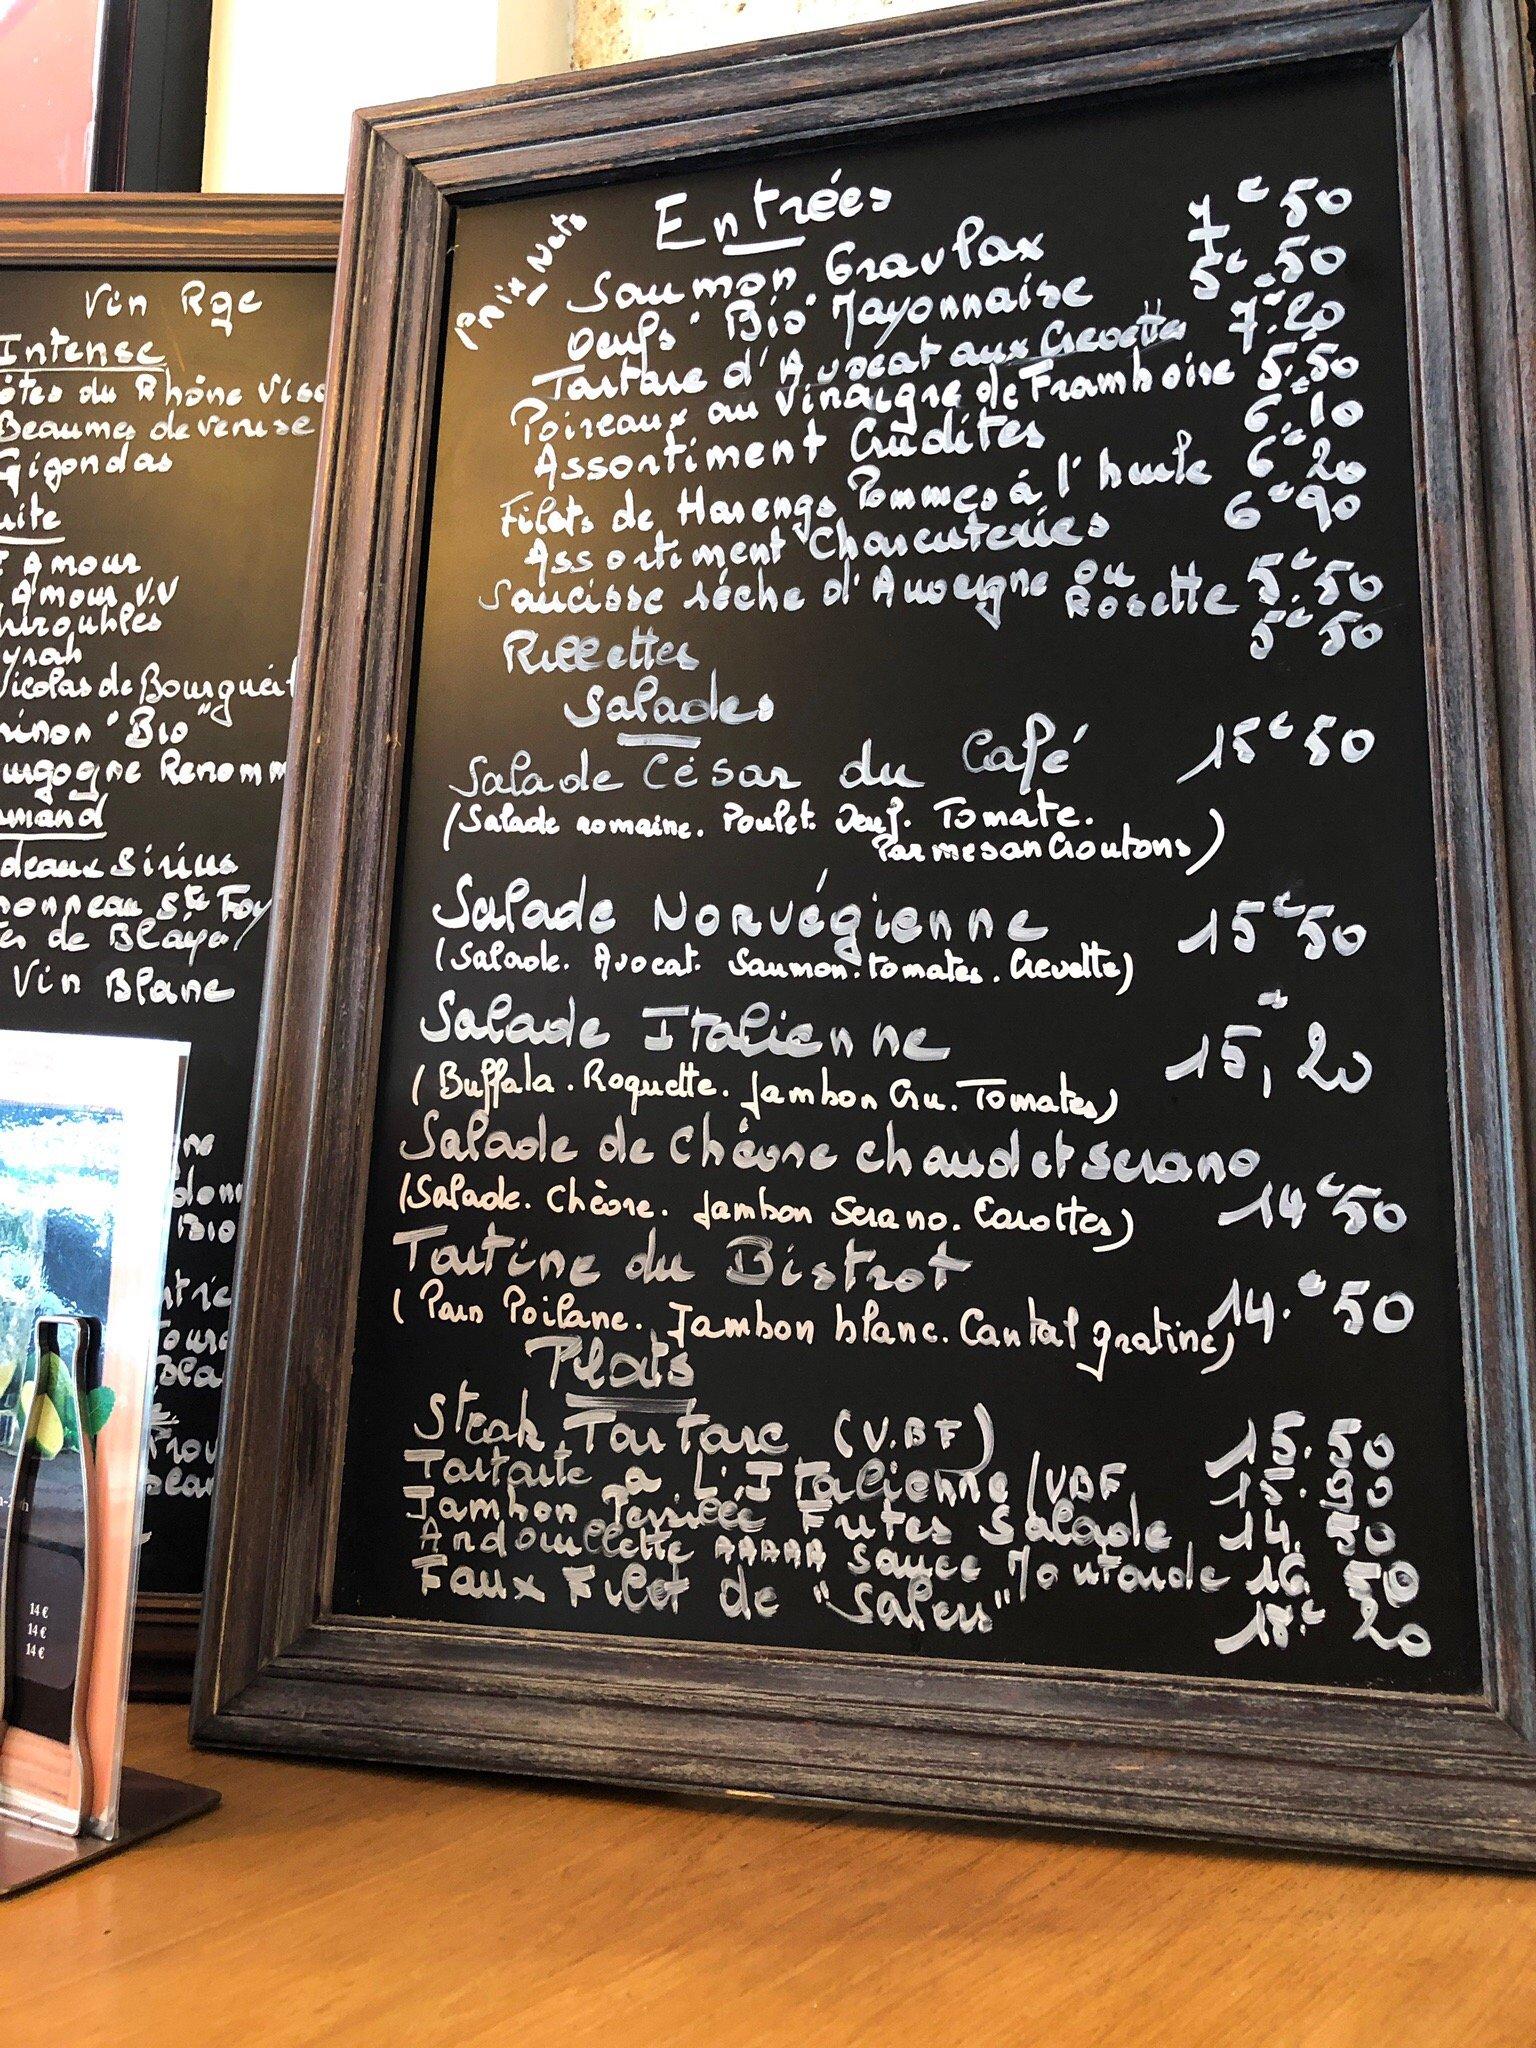 Vin Rge
Intense
ôtes du Rhône Viss
Beaumes de venise
Gigondas
uite
Amour
Amour V.V
hiroubles
yrah
Nicolas de Bourgueil
hinon "Bio"
urgogne Renomm
rmand
deaux Sirius
onneau Ste Foy
tes de Blaye
Vin Blanc
Bio
14 €
14 €
14 €
Prix Nets
Entrées
Saumon Gravlax 7€50
Oeufs "Bio" Mayonnaise 5€50
Tartare d'Avocat aux Crevettes 7.20
Poireaux au Vinaigre de Framboise 5.50
Assortiment Crudités 6€10
Filets de Harengs Pommes à l'huile 6€20
Assortiment Charcuteries 6€90
Saucisse sèche d'Auvergne ou Rosette 5€50
Rillettes 5€50
Salades
Salade César du Café 15€50
(Salade romaine. Poulet. Oeuf. Tomate.
Parmesan Croutons)
Salade Norvégienne 15€50
(Salade. Avocat. Saumon. tomates. Crevette)
Salade Italienne 15,20
(Buffala. Roquette. Jambon Cru. Tomates)
Salade de Chèvre chaud et Serano
(Salade. Chèvre. Jambon Serano. Carottes) 14€50
Tartine du Bistrot
(Pain Poilane. Jambon blanc. Cantal gratiné) 14.€50
Plats
Steak Tartare (V.BF) 15.50
Tartare a L'Italienne (VBF 15.90
Jambon Persillé Frites Salade 14.50
Andouillette AAAAA Sauce Moutarde 16.50
Faux Filet de "Salers" 18.€20